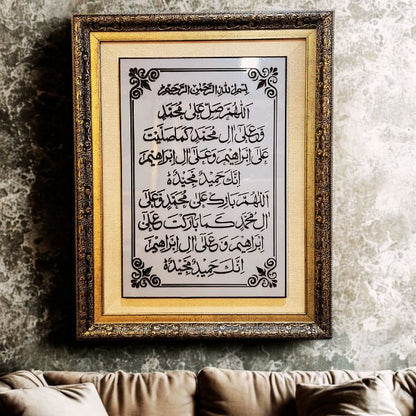 بسم الله الرحمن الرحيم
اللهم صل على محمد
وعلى ال محمد كما صليت
على ابراهيم وعلى ال ابراهيم
انك حميد مجيد
اللهم بارك على محمد وعلى
ال محمد كما باركت وعلى
ابراهيم وعلى ال ابراهيم
انك حميد مجيد